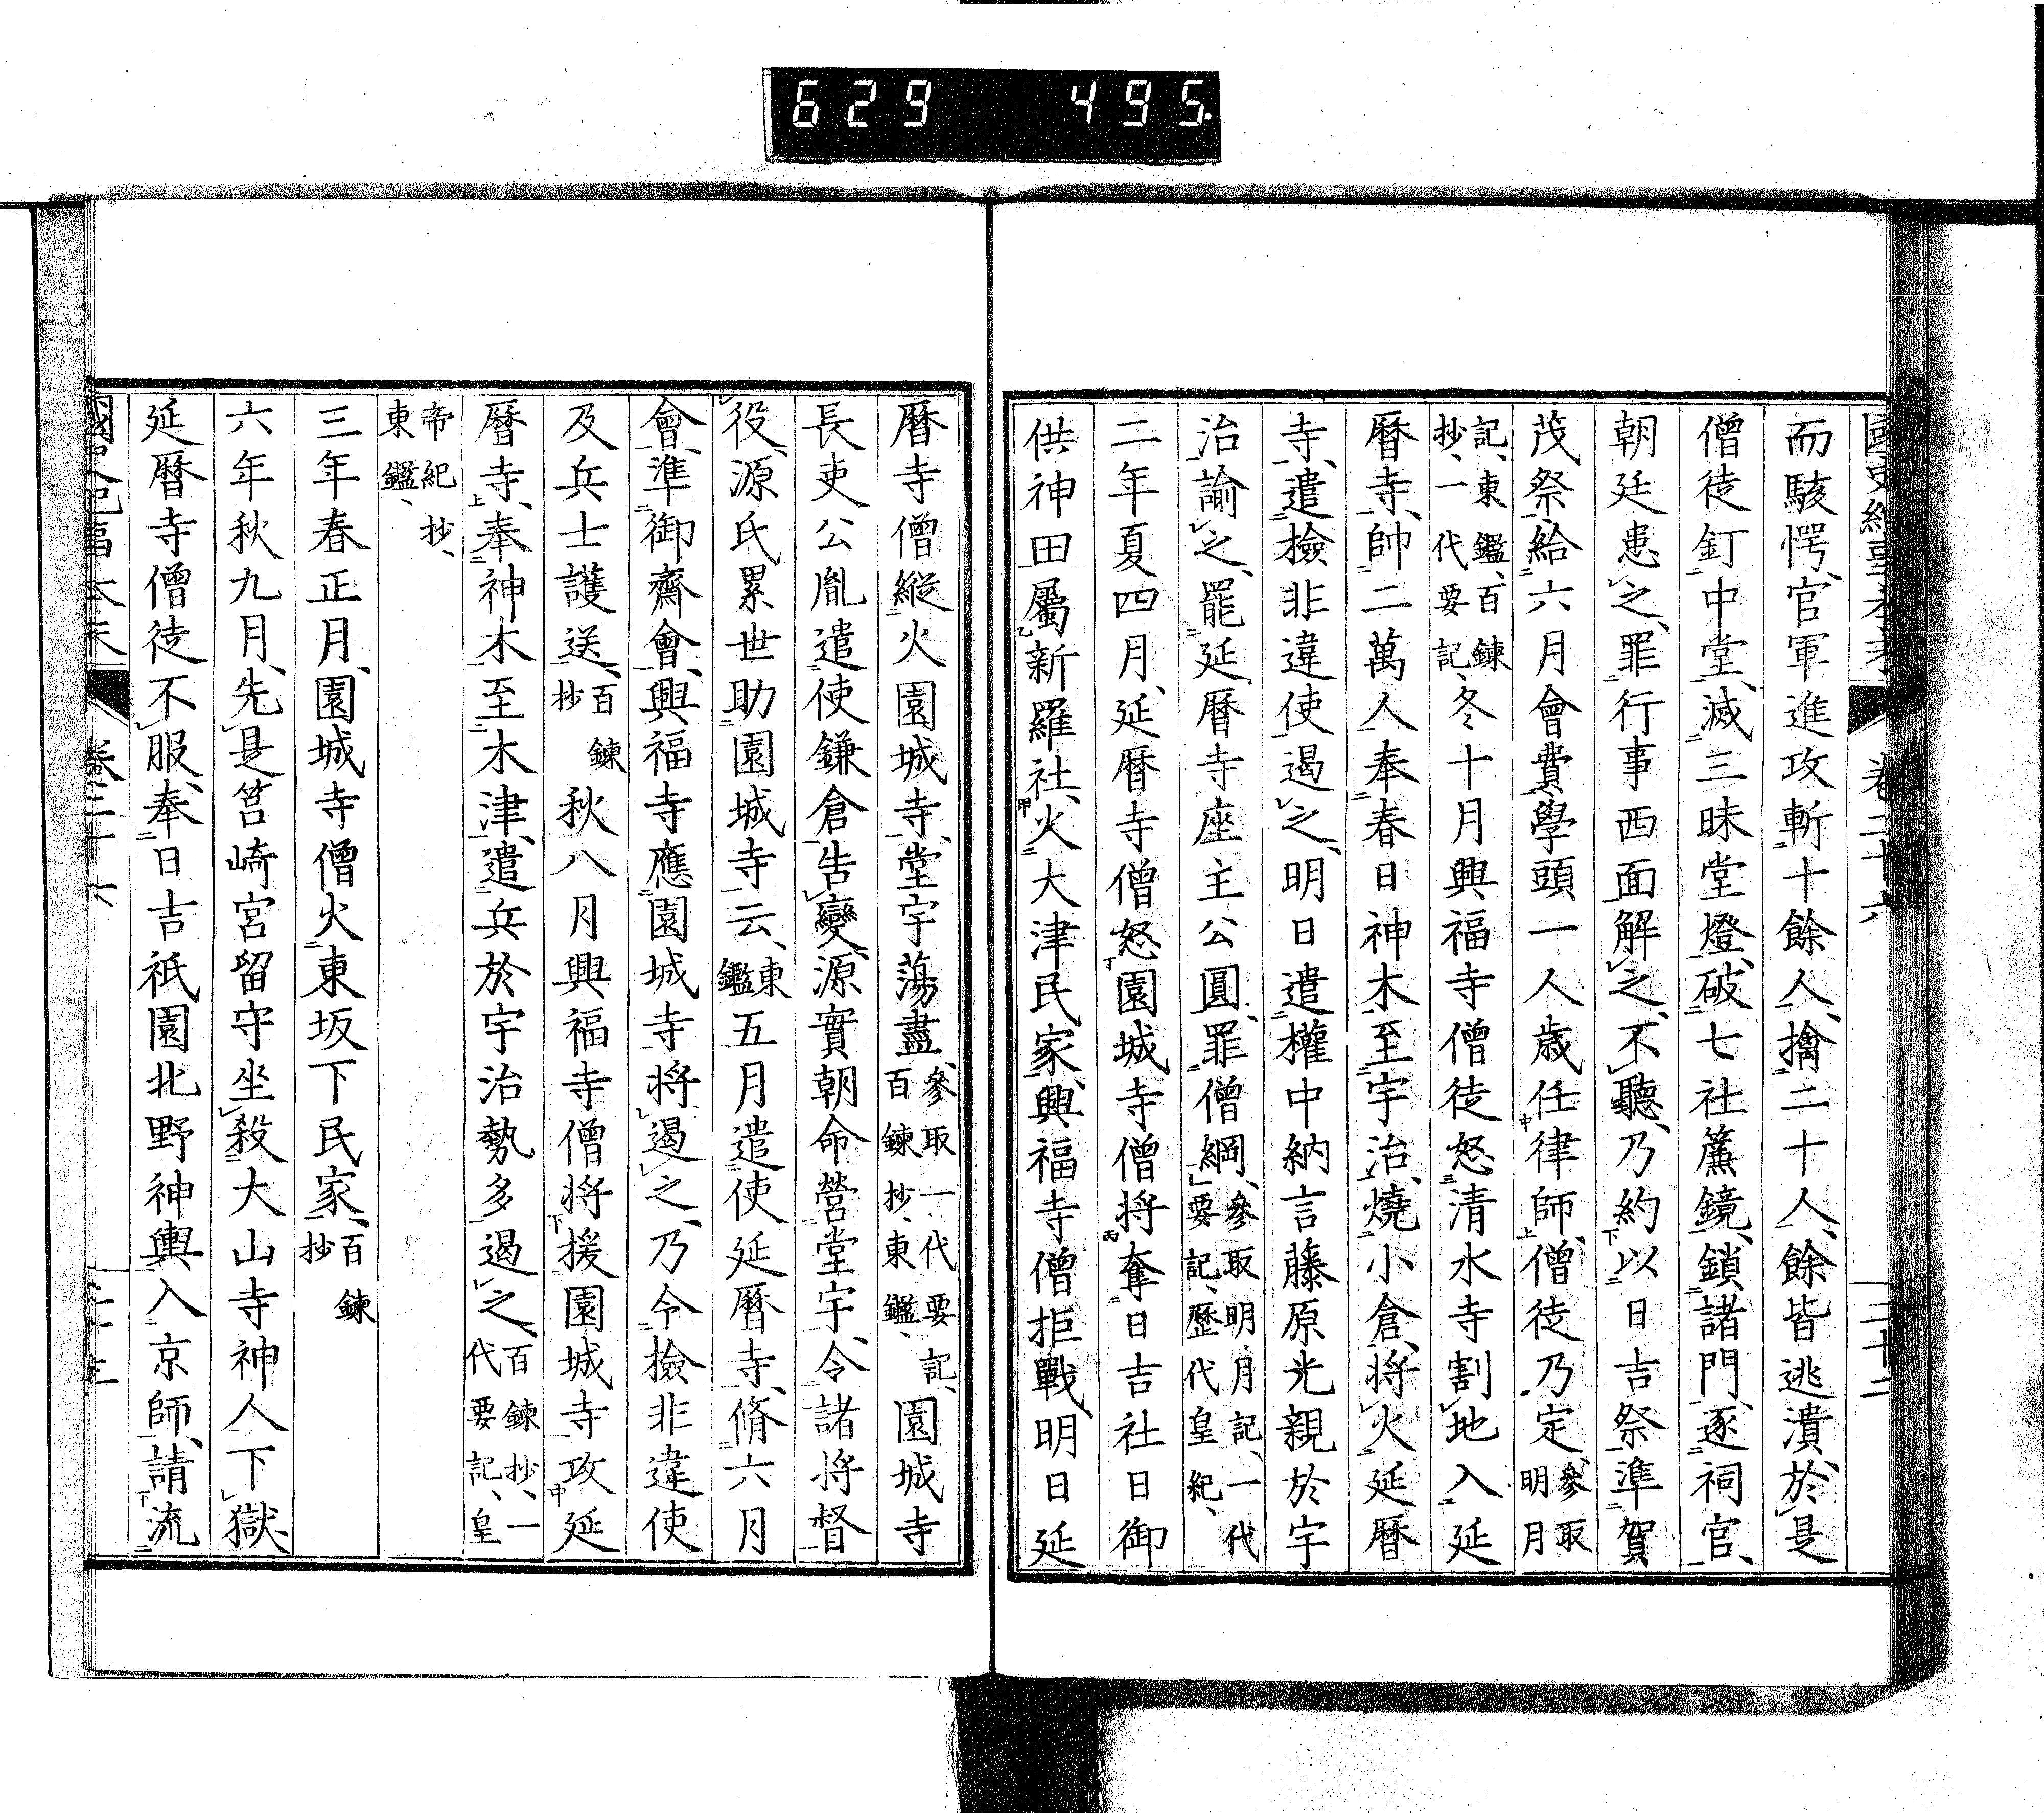 629 495.
國史紀事本末 卷二十六 二十二
而駭愕、官軍進攻斬十餘人、擒二十人、餘皆逃潰、於是
僧徒釘中堂、滅三昧堂燈、破七社簾鏡、鎖諸門、逐祠官、
朝廷患之、罪行事西面解之、不聽、乃約以日吉祭準賀
茂祭、給六月會費、學頭一人歳任律師、僧徒乃定、參取明月
記、東鑑、百鍊抄、一代要記、冬十月興福寺僧徒怒清水寺割地入延
曆寺、帥二萬人奉春日神木至宇治、燒小倉、將火延曆
寺、遣撿非違使遏之、明日遣權中納言藤原光親於宇
治諭之、罷延曆寺座主公圓、罪僧綱、參取明月記、一代要記、歷代皇紀、
二年夏四月、延曆寺僧怒園城寺僧將奪日吉社日御
供神田屬新羅社、火大津民家、興福寺僧拒戰、明日延
曆寺僧縱火園城寺、堂宇蕩盡、參取一代要記、百鍊抄、東鑑、園城寺
長吏公胤遣使鎌倉告變、源實朝命營堂宇、令諸將督
役、源氏累世助園城寺云、東鑑五月遣使延曆寺、脩六月
會、準御齋會、興福寺應園城寺將遏之、乃令撿非違使
及兵士護送、百鍊抄秋八月興福寺僧將援園城寺攻延
曆寺、奉神木至木津、遣兵於宇治勢多遏之、百鍊抄、一代要記、皇
帝紀抄、東鑑、
三年春正月、園城寺僧火東坂下民家、百鍊抄
六年秋九月、先是筥崎宮留守坐殺大山寺神人下獄、
延曆寺僧徒不服、奉日吉祇園北野神輿入京師、請流
國史紀事本末 卷二十六